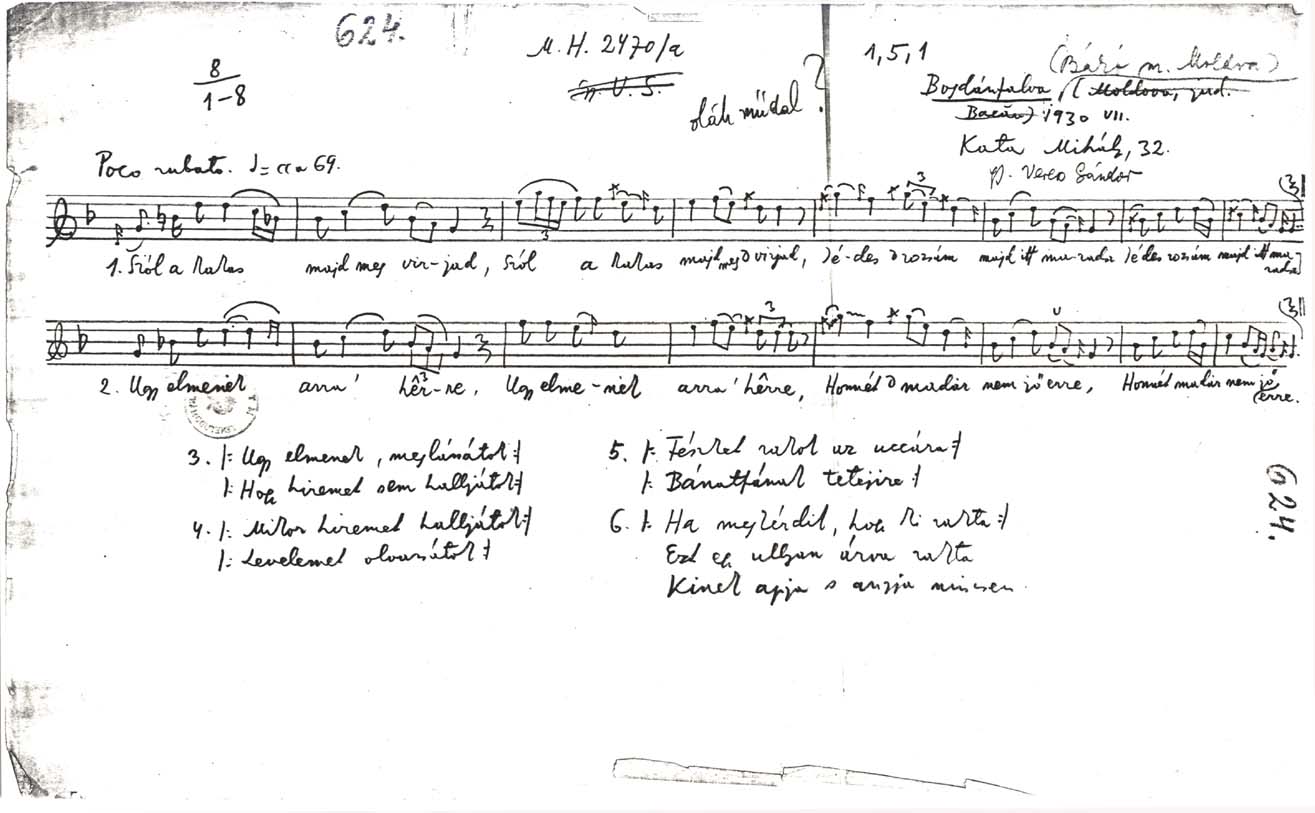 624.
M. H. 2470/a
8
1-8
oláh műdal ?
1, 5, 1
(Băzi m. Moldva)
Bogdánfalva (Moldova, jud.
Bacău) 1930 VII.
Kata Mihály, 32.
gy. Veress Sándor
Poco rubato. ♩= cca 69.
1. Szól a kakas majd meg vir-jad, Szól a kakas majd meg virjad, Jé-des rozsám majd itt mu-radsz Jédes rozsám majd itt mu-
radsz
2. Ugy elmenek arra' hêr-re, Ugy elme-nek arra' hêrre, Honnét madár nem jő erre, Honnét madár nem jő
erre.
3. |: Ugy elmenek, meglássátok :|
|: Hogy hiremet sem halljátok :|
4. |: Mikor hiremet halljátok :|
|: Levelemet olvassátok :|
5. |: Fészket rakok az uccára :|
|: Bánatfának tetejire :|
6. |: Ha megkérdik, hogy ki rakta :|
Ezt egy ulyan árva rakta
Kinek apja s anyja nincsen.
624.